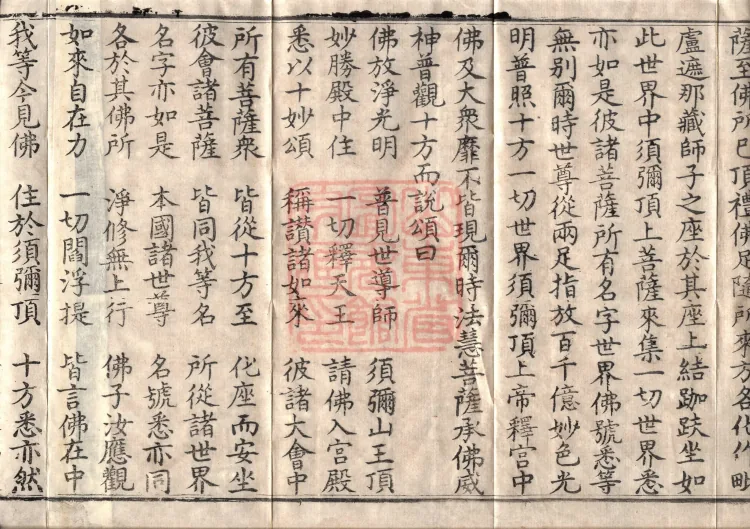 薩至佛所已頂禮佛足隨所來方各化作毗
盧遮那藏師子之座於其座上結跏趺坐如
此世界中須彌頂上菩薩來集一切世界悉
亦如是彼諸菩薩所有名字世界佛號悉等
無別爾時世尊從兩足指放百千億妙色光
明普照十方一切世界須彌頂上帝釋宮中
佛及大衆靡不皆現爾時法慧菩薩承佛威
神普觀十方而說頌曰
佛放淨光明 普見世導師 須彌山王頂
妙勝殿中住 一切釋天王 請佛入宮殿
悉以十妙頌 稱讚諸如來 彼諸大會中
所有菩薩衆 皆從十方至 化座而安坐
彼會諸菩薩 皆同我等名 所從諸世界
名字亦如是 本國諸世尊 名號悉亦同
各於其佛所 淨修無上行 佛子汝應觀
如來自在力 一切閻浮提 皆言佛在中
我等今見佛 住於須彌頂 十方悉亦然